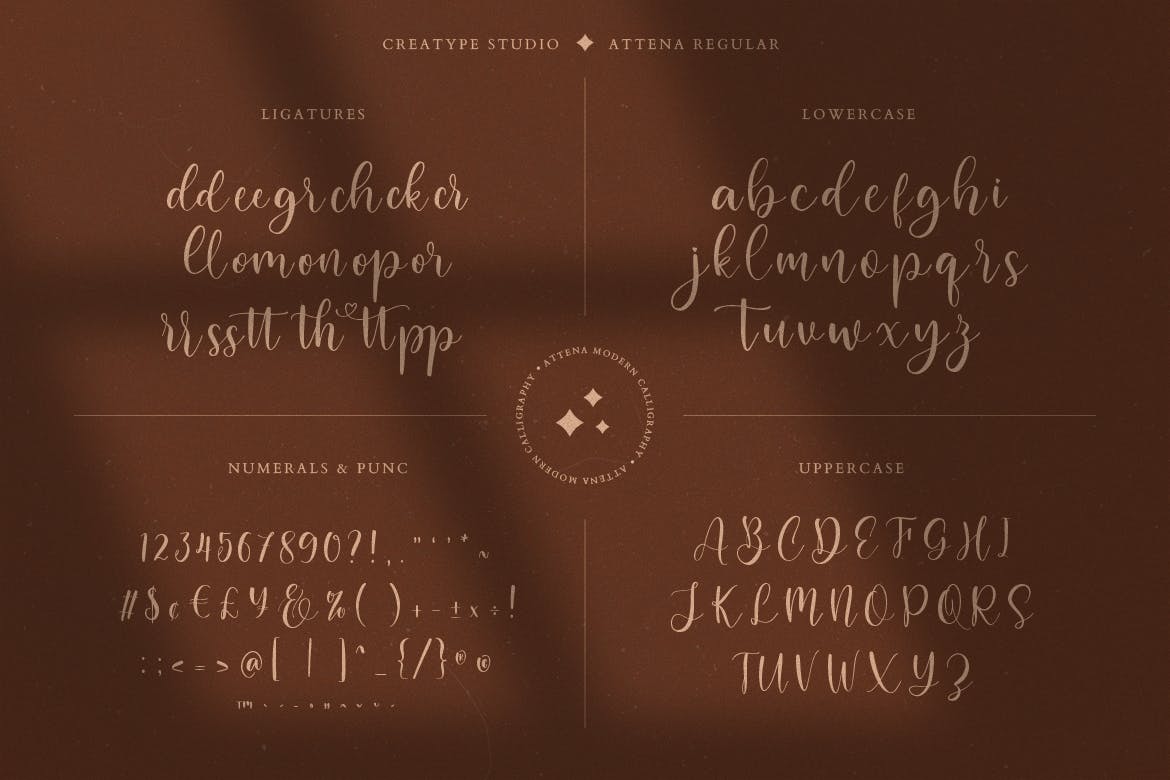 CREATYPE STUDIO ✦ ATTENA REGULAR
LIGATURES
dd ee gr ch ck cr
ll om on op or
rr ss tt th tt pp
LOWERCASE
a b c d e f g h i
j k l m n o p q r s
t u v w x y z
ATTENA MODERN CALLIGRAPHY • ATTENA MODERN CALLIGRAPHY •
NUMERALS & PUNC
1234567890?!,. " ' ' * ~
# $ ¢ € £ ¥ & % ( ) + - ± x ÷ !
: ; < = > @ [ | ] ^ _ { / } ® ©
™
UPPERCASE
A B C D E F G H I
J K L M N O P Q R S
T U V W X Y Z